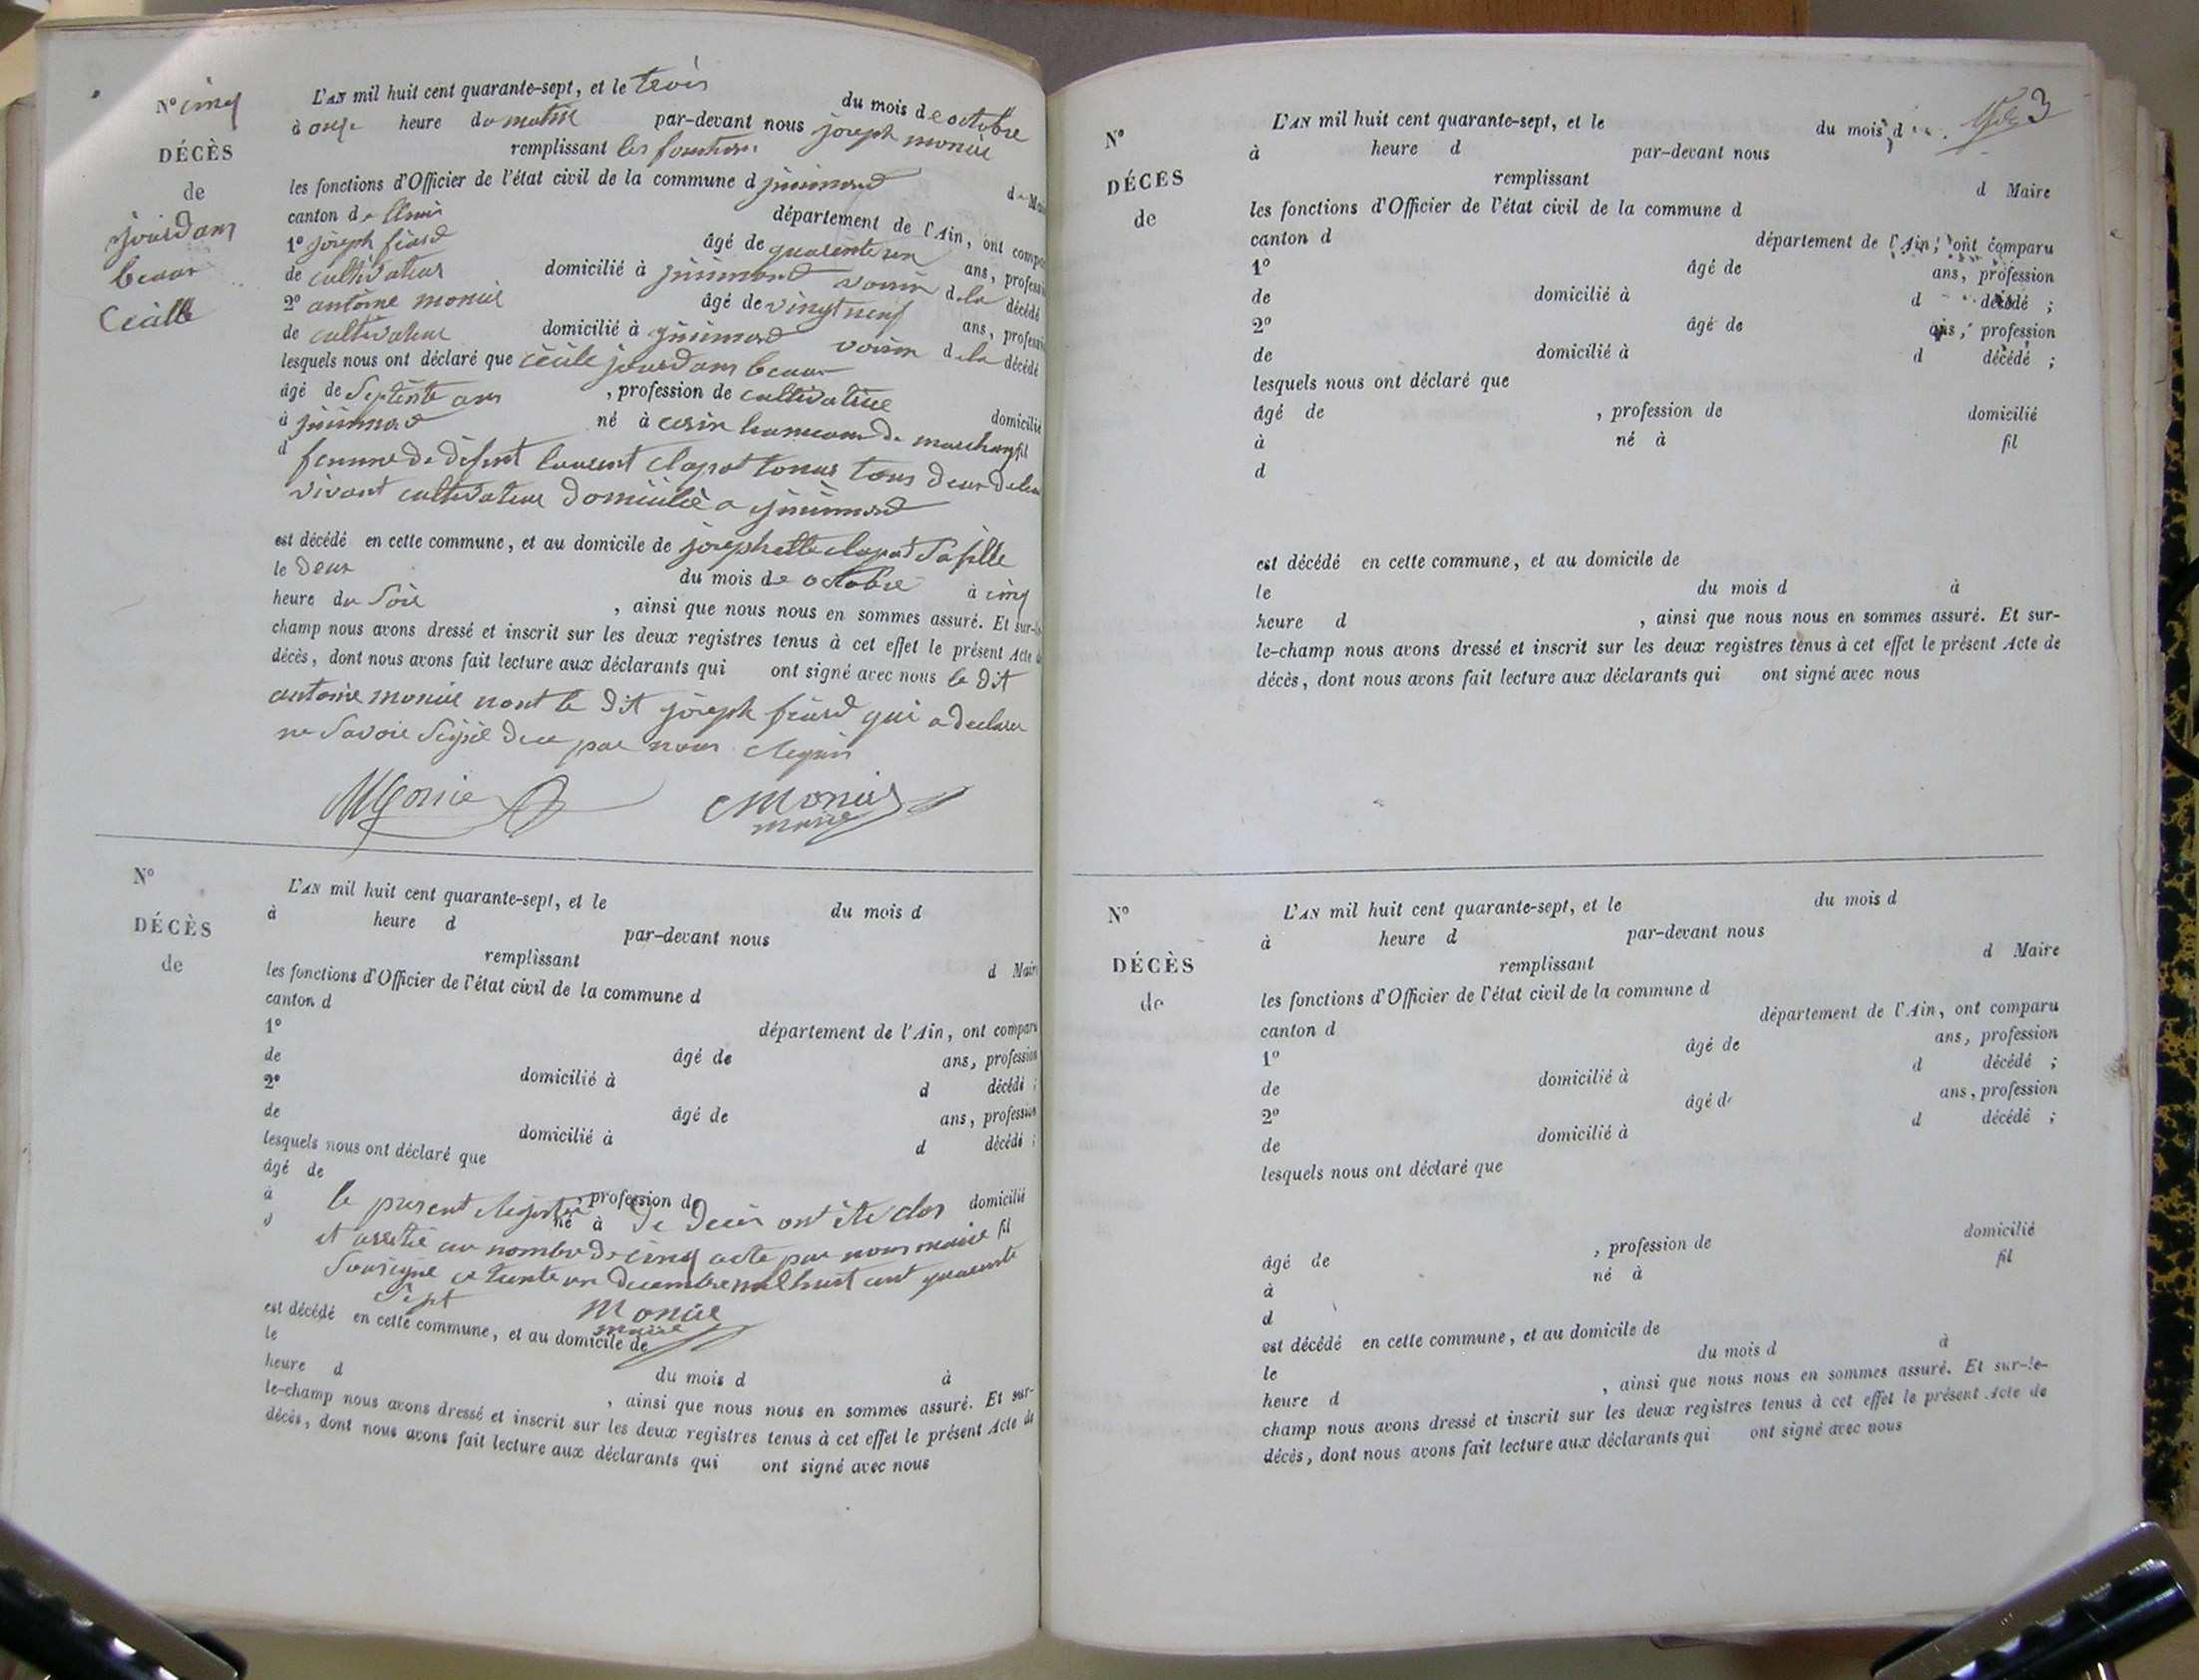 N° cinq
DÉCÈS
de
jourdam
beaux
Cécille
L'AN mil huit cent quarante-sept, et le trois du mois de octobre
à onze heure du matin par-devant nous joseph monier
remplissant les fonctions d Maire
les fonctions d'Officier de l'état civil de la commune d
canton de département de l'Ain, ont comparu
1° joseph âgé de quarente un ans, profession
de cultivateur domicilié à voisin de la décédé
2° antoine monier âgé de vingt neuf ans, profession
de cultivateur domicilié à voisin de la décédé
lesquels nous ont déclaré que cécile jourdam beaux
âgé de Septente ans , profession de cultivatrice domicilié
à né à hameau de fil
d femme de défunt laurent clapot tous deux de leur
vivant cultivateur domicilié a
est décédé en cette commune, et au domicile de josephette clapot Sa fille
le deux du mois de octobre à cinq
heure du Soir , ainsi que nous nous en sommes assuré. Et sur-le-
champ nous avons dressé et inscrit sur les deux registres tenus à cet effet le présent Acte de
décès, dont nous avons fait lecture aux déclarants qui ont signé avec nous le dit
antoine monier le dit joseph qui a declarer
ne Savoir Signé par nous
Monier
Monier
maire
N°
DÉCÈS
de
L'AN mil huit cent quarante-sept, et le du mois d
à heure d par-devant nous
remplissant d Maire
les fonctions d'Officier de l'état civil de la commune d
canton d département de l'Ain, ont comparu
1° âgé de ans, profession
de domicilié à d décédé ;
2° âgé de ans, profession
de domicilié à d décédé ;
lesquels nous ont déclaré que
âgé de , profession de domicilié
à né à fil
d
le present Registre de décès ont été clos
et arretté au nombre de cinq acte par nous maire
Sousigné ce trente un decembre mil huit cent quarente
Sept
Monier
maire
est décédé en cette commune, et au domicile de
le du mois d à
heure d , ainsi que nous nous en sommes assuré. Et sur-
le-champ nous avons dressé et inscrit sur les deux registres tenus à cet effet le présent Acte de
décès, dont nous avons fait lecture aux déclarants qui ont signé avec nous
3
N°
DÉCÈS
de
L'AN mil huit cent quarante-sept, et le du mois d
à heure d par-devant nous
remplissant d Maire
les fonctions d'Officier de l'état civil de la commune d
canton d département de l'Ain, ont comparu
1° âgé de ans, profession
de domicilié à d décédé ;
2° âgé de ans, profession
de domicilié à d décédé ;
lesquels nous ont déclaré que
âgé de , profession de domicilié
à né à fil
d
est décédé en cette commune, et au domicile de
le du mois d à
heure d , ainsi que nous nous en sommes assuré. Et sur-
le-champ nous avons dressé et inscrit sur les deux registres tenus à cet effet le présent Acte de
décès, dont nous avons fait lecture aux déclarants qui ont signé avec nous
N°
DÉCÈS
de
L'AN mil huit cent quarante-sept, et le du mois d
à heure d par-devant nous
remplissant d Maire
les fonctions d'Officier de l'état civil de la commune d
canton d département de l'Ain, ont comparu
1° âgé de ans, profession
de domicilié à d décédé ;
2° âgé de ans, profession
de domicilié à d décédé ;
lesquels nous ont déclaré que
âgé de , profession de domicilié
à né à fil
d
est décédé en cette commune, et au domicile de
le du mois d à
heure d , ainsi que nous nous en sommes assuré. Et sur-le-
champ nous avons dressé et inscrit sur les deux registres tenus à cet effet le présent Acte de
décès, dont nous avons fait lecture aux déclarants qui ont signé avec nous